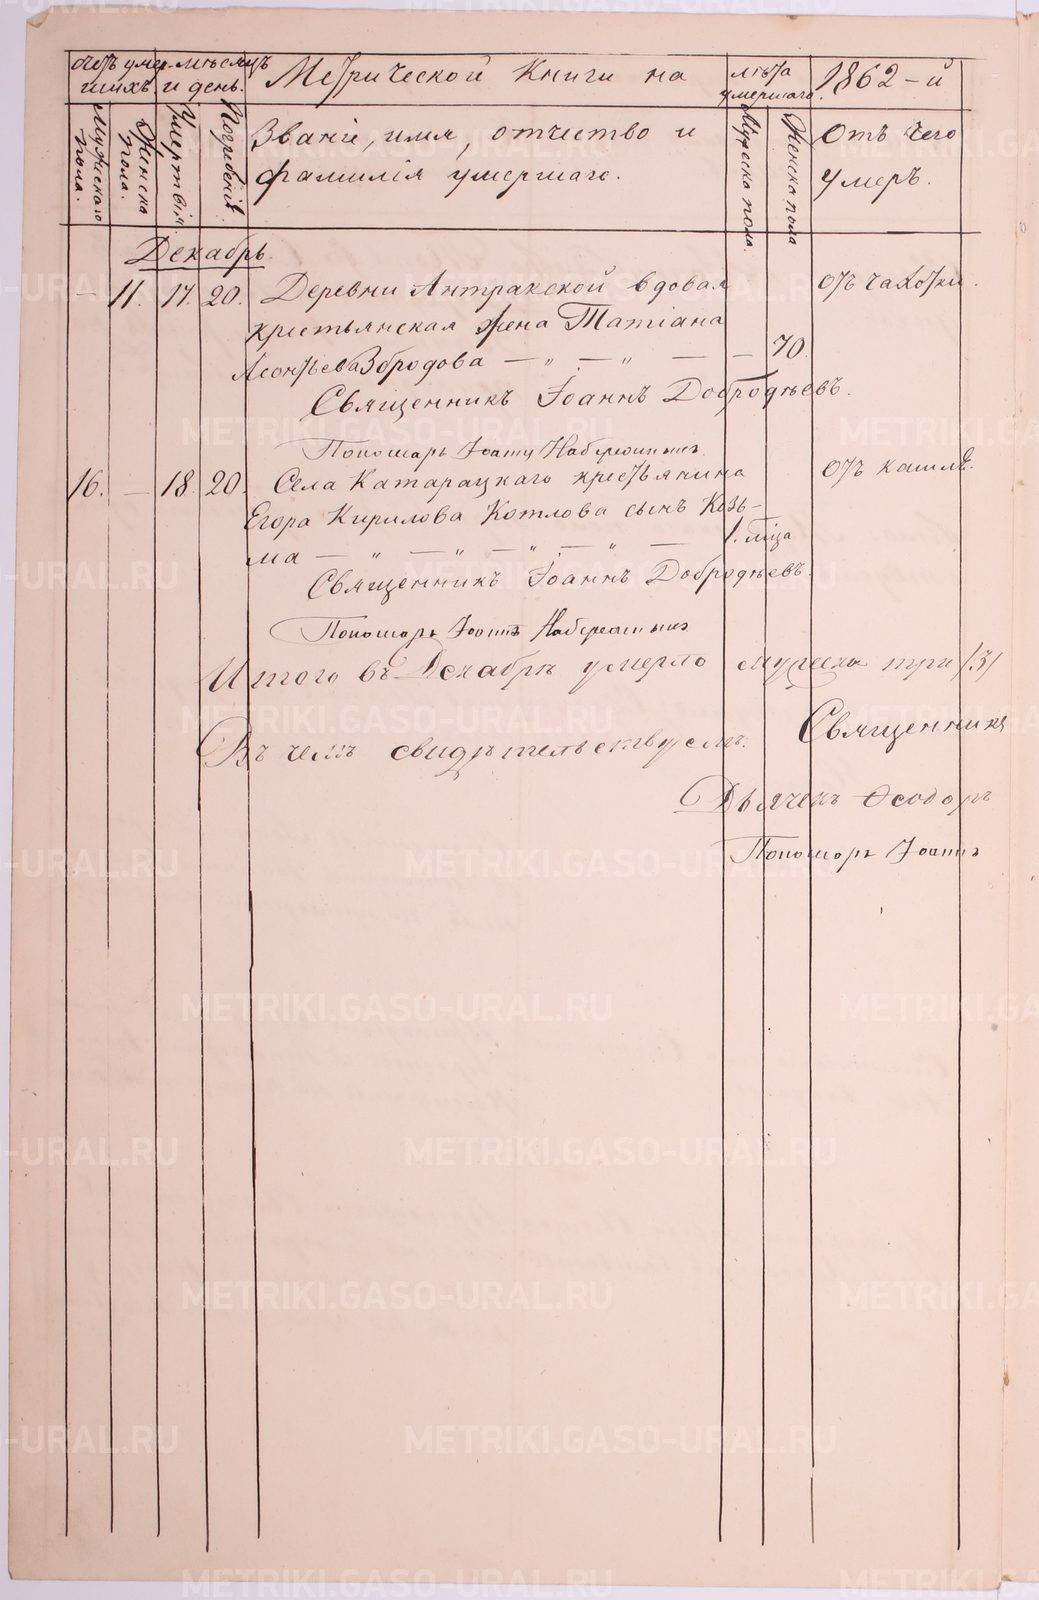 счетъ умер- мѣсяцъ Метрической Книги на лѣта 1862 - й
шихъ. и день. умершаго.
Мужескаго пола. Женска пола. Умертвія. Погребенія. Званіе, имя, отчество и Мужеска пола. Женска пола Отъ чего
фамилія умершаго. умеръ.
Декабрь.
— 11. 17. 20. Деревни Антракской вдовая отъ чахотки.
крестьянская жена Татіана
Леонтьева Збродова — „ — „ — — 70.
Священникъ Іоаннъ Добродѣевъ.
Пономарь Іоаннъ
16. — 18. 20. Села Катарацкаго крестьянина отъ кашля.
Егора Кирилова Котлова сынъ Козь-
ма — „ — „ — „ — „ — 1. мца
Священникъ Іоаннъ Добродѣевъ.
Пономарь Іоаннъ
Итого въ Декабрѣ умерло мужеска три /3/
Въ чемъ свидѣтельствуемъ. Священникъ
Дьячекъ Ѳеодоръ
Пономарь Іоаннъ
METRIKI.GASO-URAL.RU